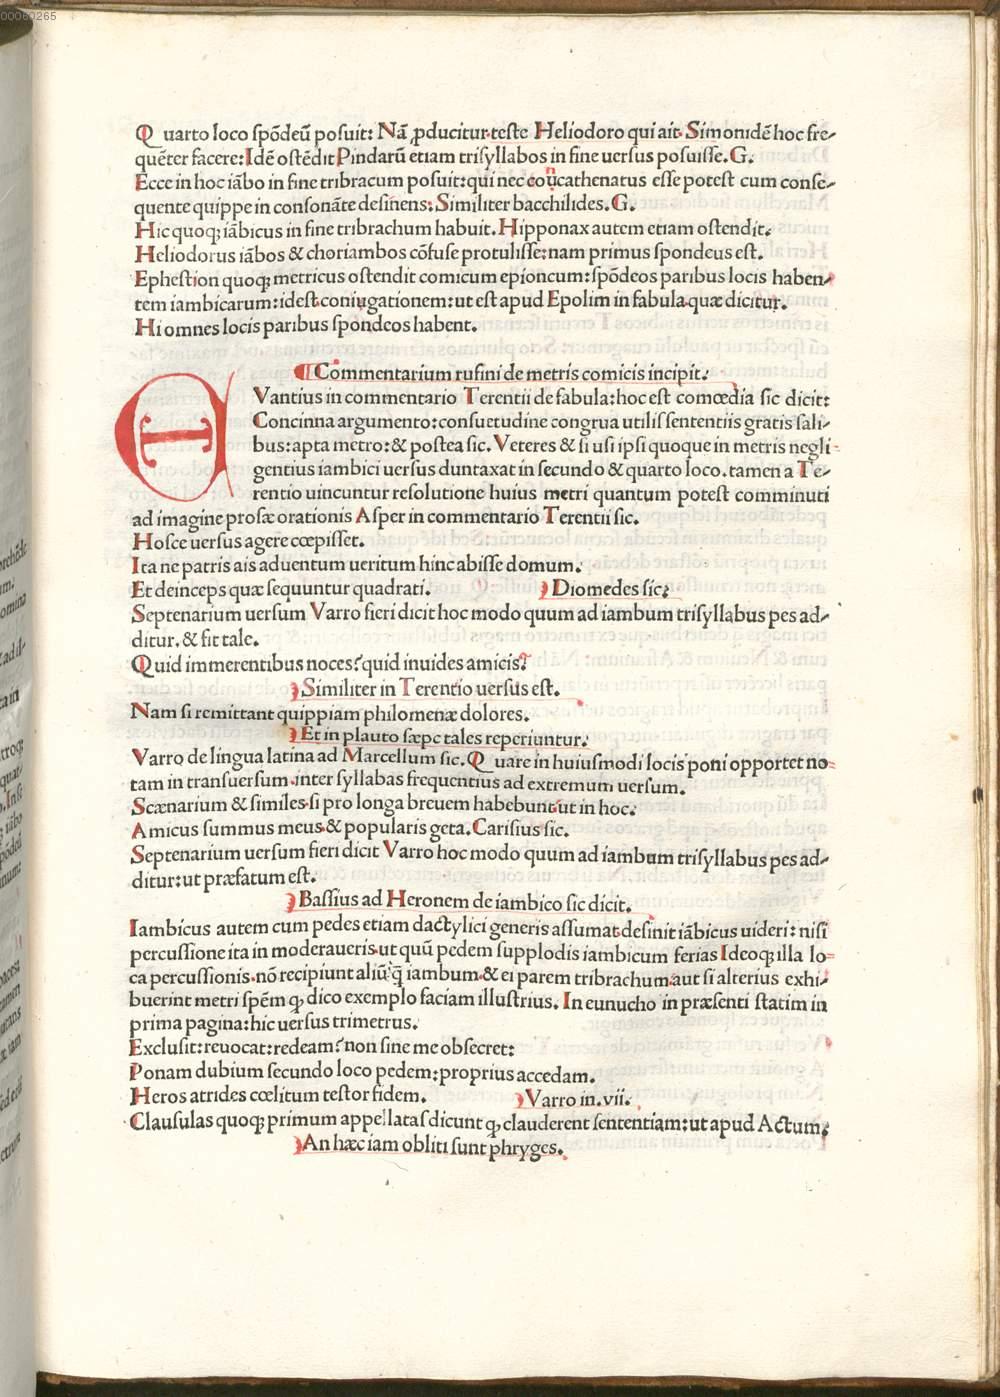 00060265
Quarto loco spōdeū posuit: Nā ꝓducitur teste Heliodoro qui ait Simonidē hoc fre-
quēter facere: Idē ostēdit Pindarū etiam trisyllabos in fine uersus posuisse. G.
Ecce in hoc iābo in fine tribracum posuit: qui nec cathenatus esse potest cum conse-
quente quippe in consonāte desinens: Similiter bacchilides. G.
Hic quoqꝫ iābicus in fine tribrachum habuit. Hipponax autem etiam ostendit.
Heliodorus iābos & choriambos cōfuse protulisse: nam primus spondeus est.
Ephestion quoqꝫ metricus ostendit comicum epionicum: spōdeos paribus locis haben-
tem iambicarum: idest coniugationem: ut est apud Epolim in fabula quæ dicitur.
Hi omnes locis paribus spondeos habent.
Commentarium rufini de metris comicis incipit.
EVantius in commentario Terentii de fabula: hoc est comœdia sic dicit:
Concinna argumento: consuetudine congrua utilis sententiis gratis sali-
bus: apta metro: & postea sic. Veteres & si usi ipsi quoque in metris negli-
gentius iambici uersus duntaxat in secundo & quarto loco. tamen a Te-
rentio uincuntur resolutione huius metri quantum potest comminuti
ad imagine prosæ orationis Asper in commentario Terentii sic.
Hosce uersus agere cœpisset.
Ita ne patris ais aduentum ueritum hinc abisse domum.
Et deinceps quæ sequuntur quadrati. Diomedes sic:
Septenarium uersum Varro fieri dicit hoc modo quum ad iambum trisyllabus pes ad-
ditur. & fit tale.
Quid immerentibus noces? quid inuides amicis?
Similiter in Terentio uersus est.
Nam si remittant quippiam philomenæ dolores.
Et in plauto sæpe tales reperiuntur.
Varro de lingua latina ad Marcellum sic. Quare in huiusmodi locis poni opportet no-
tam in transuersum. inter syllabas frequentius ad extremum uersum.
Scænarium & similes si pro longa breuem habebunt ut in hoc.
Amicus summus meus & popularis geta. Carisius sic.
Septenarium uersum fieri dicit Varro hoc modo quum ad iambum trisyllabus pes ad-
ditur: ut præfatum est.
Bassius ad Heronem de iambico sic dicit.
Iambicus autem cum pedes etiam dactylici generis assumat desinit iābicus uideri: nisi
percussione ita in moderaueris ut quū pedem supplodis iambicum ferias Ideoqꝫ illa lo-
ca percussionis nō recipiunt aliū q̄ iambum & ei parem tribrachum aut si alterius exhi-
buerint metri spēm qꝫ dico exemplo faciam illustrius. In eunucho in præsenti statim in
prima pagina: hic uersus trimetrus.
Exclusit: reuocat: redeam? non sine me obsecret:
Ponam dubium secundo loco pedem: proprius accedam.
Heros atrides cœlitum testor fidem. Varro in. vii.
Clausulas quoqꝫ primum appellatas dicunt qꝫ clauderent sententiam: ut apud Actum:
An hæc iam obliti sunt phryges.